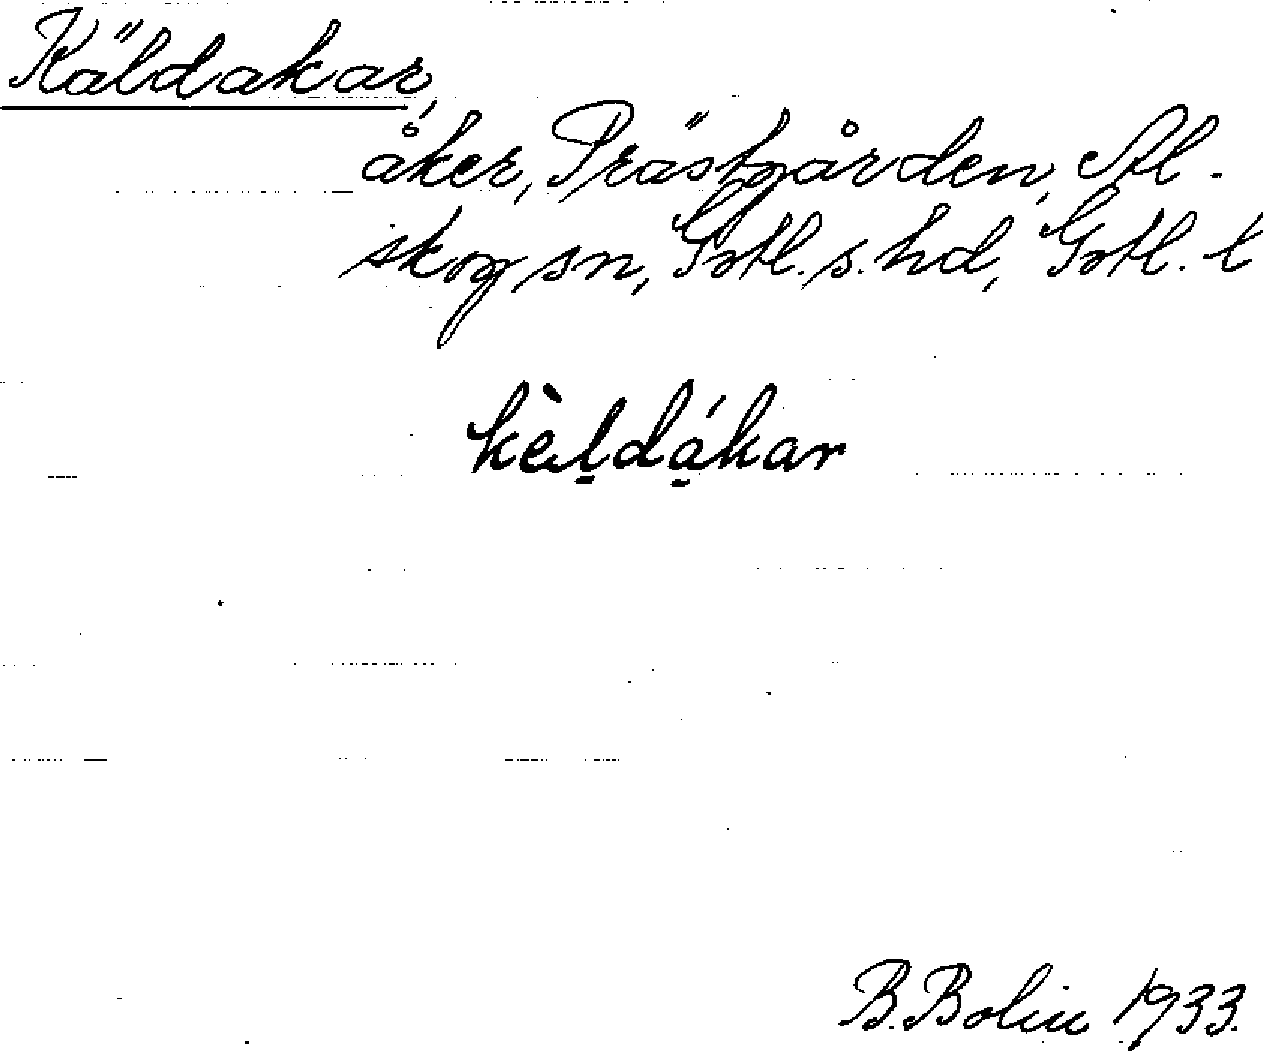 Käldakar,
åker, Prästgården, Al-
skog sn, Gotl. s. hd, Gotl. l
kèḷdá̱kar
B. Bolin 1933.